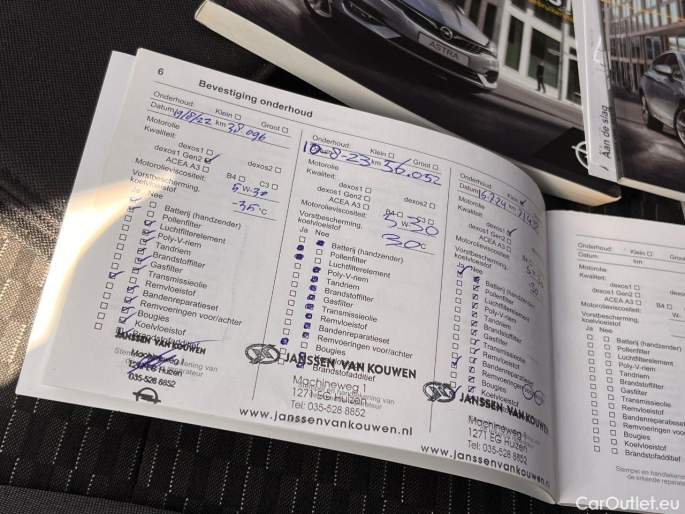 ASTRA
Aan de slag
6
Bevestiging onderhoud
Onderhoud: Klein Groot
Datum 19/8/22 km 38.096
Motorolie
Kwaliteit:
dexos1 dexos2
dexos1 Gen2
ACEA A3 B4 C3
Motorolieviscositeit: 5 W-30
Vorstbescherming,
koelvloeistof -35 °C
Ja Nee
Batterij (handzender)
Pollenfilter
Luchtfilterelement
Poly-V-riem
Tandriem
Brandstoffilter
Gasfilter
Transmissieolie
Remvloeistof
Bandenreparatieset
Remvoeringen voor/achter
Bougies
Koelvloeistof
JANSSEN VAN KOUWEN
Machineweg 1
1271 EG Huizen
035-528 8852
Onderhoud: Klein Groot
Datum 10-8-23 km 56.052
Motorolie
Kwaliteit:
dexos1 dexos2
dexos1 Gen2
ACEA A3 B4 C3
Motorolieviscositeit: 5 W-30
Vorstbescherming,
koelvloeistof 30 °C
Ja Nee
Batterij (handzender)
Pollenfilter
Luchtfilterelement
Poly-V-riem
Tandriem
Brandstoffilter
Gasfilter
Transmissieolie
Remvloeistof
Bandenreparatieset
Remvoeringen voor/achter
Bougies
Koelvloeistof
Brandstofadditief
JANSSEN VAN KOUWEN
Machineweg 1
1271 EG Huizen
Tel: 035-528 8852
www.janssenvankouwen.nl
Onderhoud: Klein Groot
Datum km
Motorolie
Kwaliteit:
dexos1
dexos1 Gen2
ACEA A3
Motorolieviscositeit:
Vorstbescherming,
koelvloeistof
Ja Nee
Batterij (handzender)
Pollenfilter
Luchtfilterelement
Poly-V-riem
Tandriem
Brandstoffilter
Gasfilter
Transmissieolie
Remvloeistof
Bandenreparatieset
Remvoeringen
Bougies
Koelvloeistof
JANSSEN VAN KOUWEN
Machineweg 1
1271 EG Huizen
Tel: 035-528 8852
www.janssenvankouwen.n
Onderhoud: Klein
Datum km
Motorolie
Kwaliteit:
dexos1
dexos1 Gen2
ACEA A3 B4
Motorolieviscositeit: W-
Vorstbescherming,
koelvloeistof
Ja Nee
Batterij (handzender)
Pollenfilter
Luchtfilterelement
Poly-V-riem
Tandriem
Brandstoffilter
Gasfilter
Transmissieolie
Remvloeistof
Bandenreparatieset
Remvoeringen voor/
Bougies
Koelvloeistof
Brandstofadditief
Stempel en handtekening
de erkende reparate
CarOutlet.eu